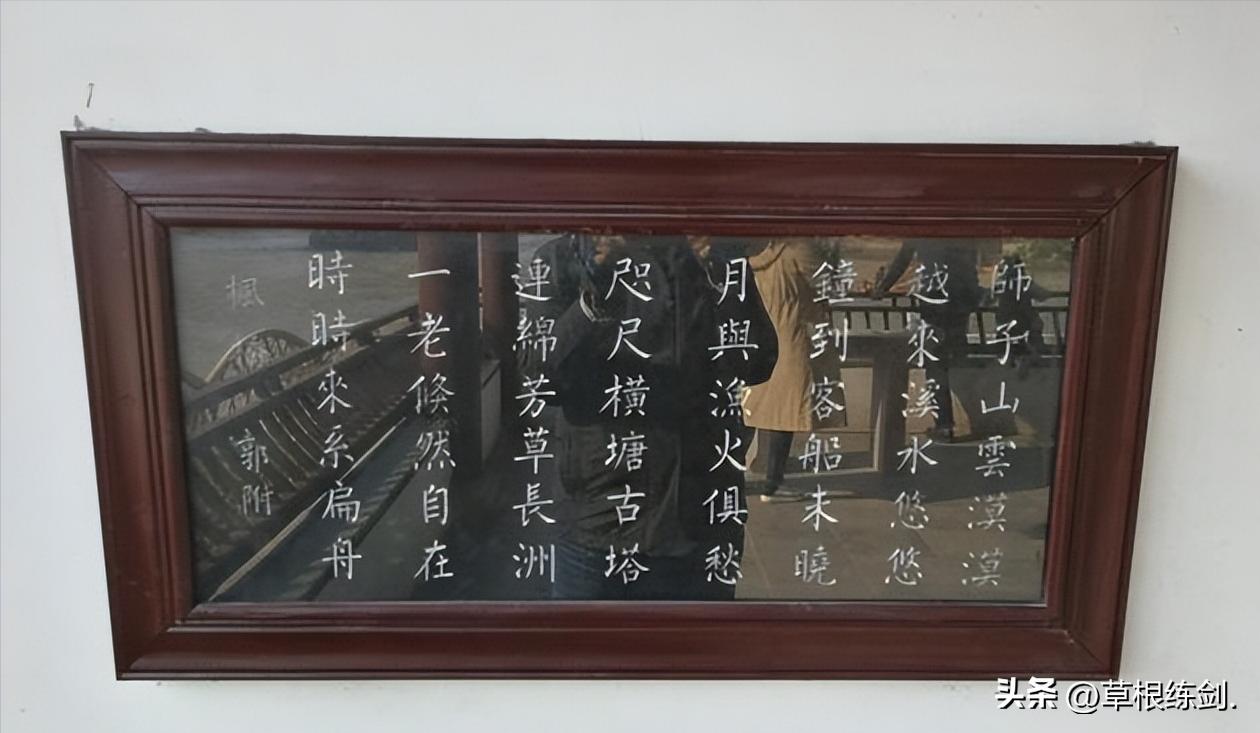 師子山雲漠漠
越來溪水悠悠
鐘到客船未曉
月與漁火俱愁
咫尺橫塘古塔
連綿芳草長洲
一老倏然自在
時時來系扁舟
楓 郭附
头条 @草根练剑.